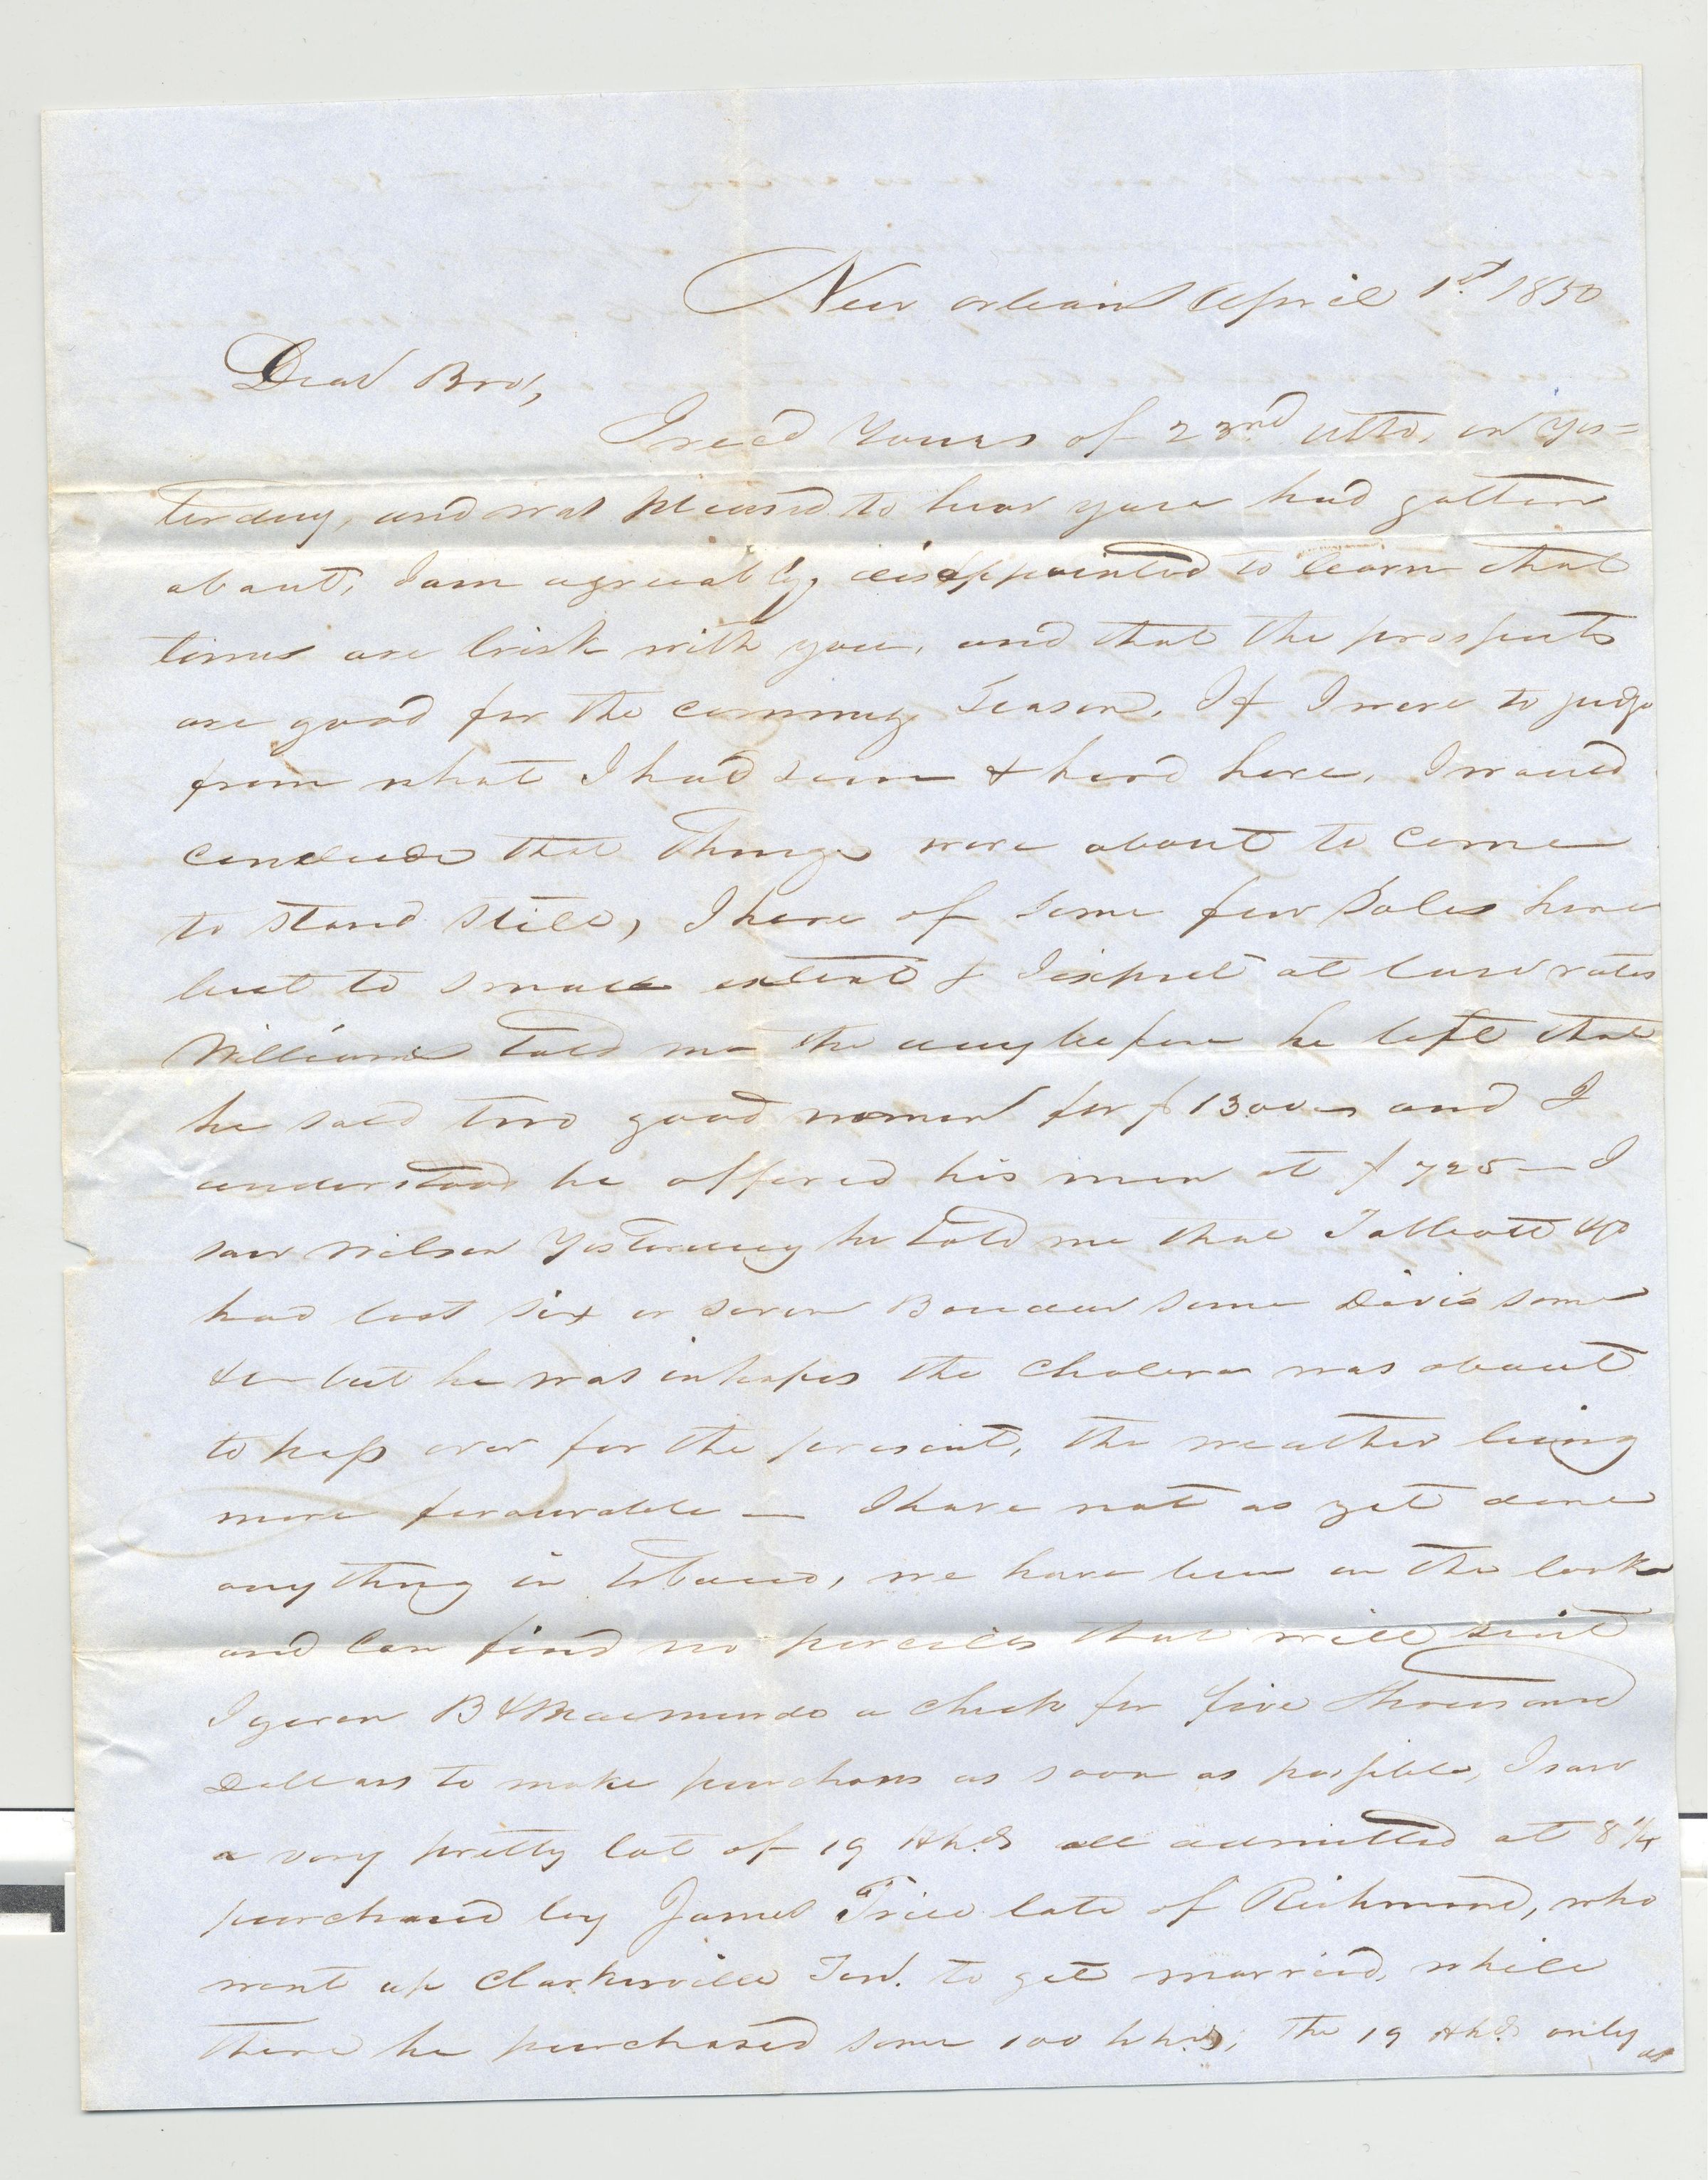 New orleans April 1st 1850
Dear Bro,
I recd Yours of 23rd ulto, on yes=
terday, and was pleased to hear you had gotten
about, I am agreeably disappointed to learn that
times are brisk with you, and that the prospects
are good for the comming Season. If I were to judge
from what I had seen & herd here, I would
conclude that Things were about to come
to stand still, I here of some few Sales here
but to small extent & I expect at low rates
Williams told me the day before he left that
he sold two good women for $1300 and I
understood he offered his men at $725— I
saw Wilson Yesterday he told me that Talbott &
had lost six or seven Boudar some Davis some
&c but he was in hopes the Cholera was about
to pass over for the present, the weather being
more favourable — I have not as yet done
any thing in tobacco, we have been on the look
and Can find no parcels that will suit
I gave B & Macmurdo a check for five Thousand
Dollars to make purchases as soon as possible, I saw
a very pretty lot of 19 Hhds all admitted at 8 1/4
purchased by James Trice late of Richmond, who
went up Clarkesville Ten. to get married, while
there he purchased some 100 hhds; the 19 Hhds only
as